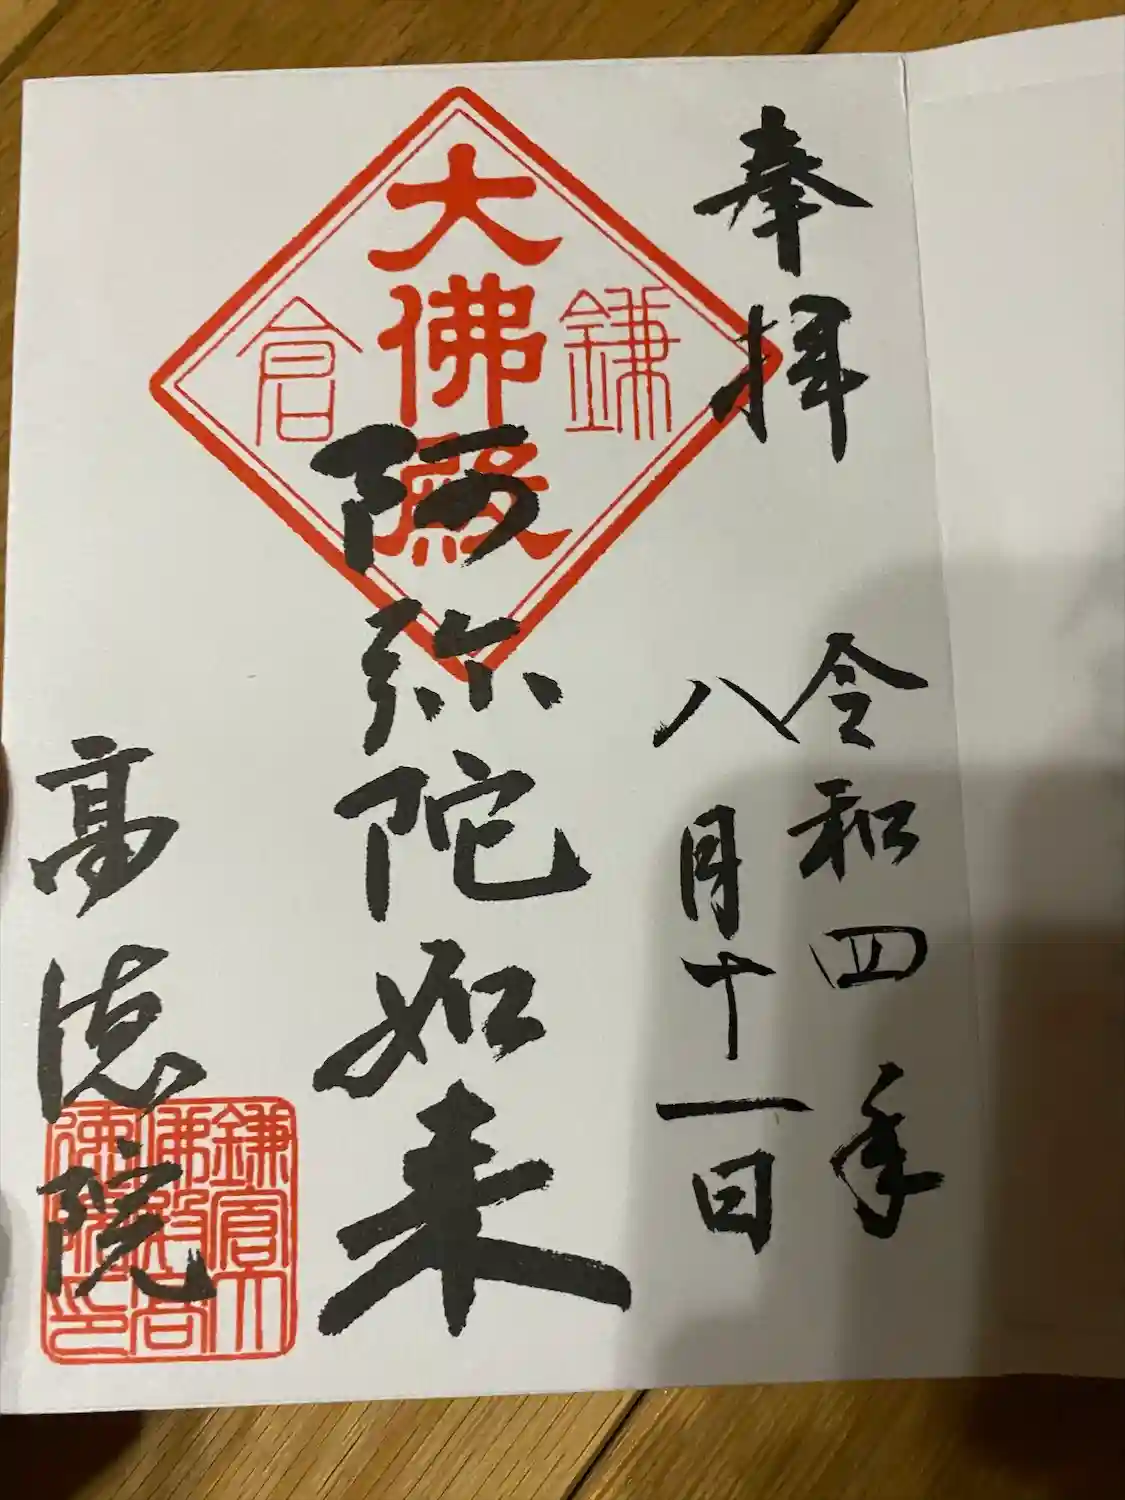 奉拝
令和四年
八月十一日
鎌倉
大佛殿
阿弥陀如来
高徳院
鎌倉大
佛殿高
徳院印